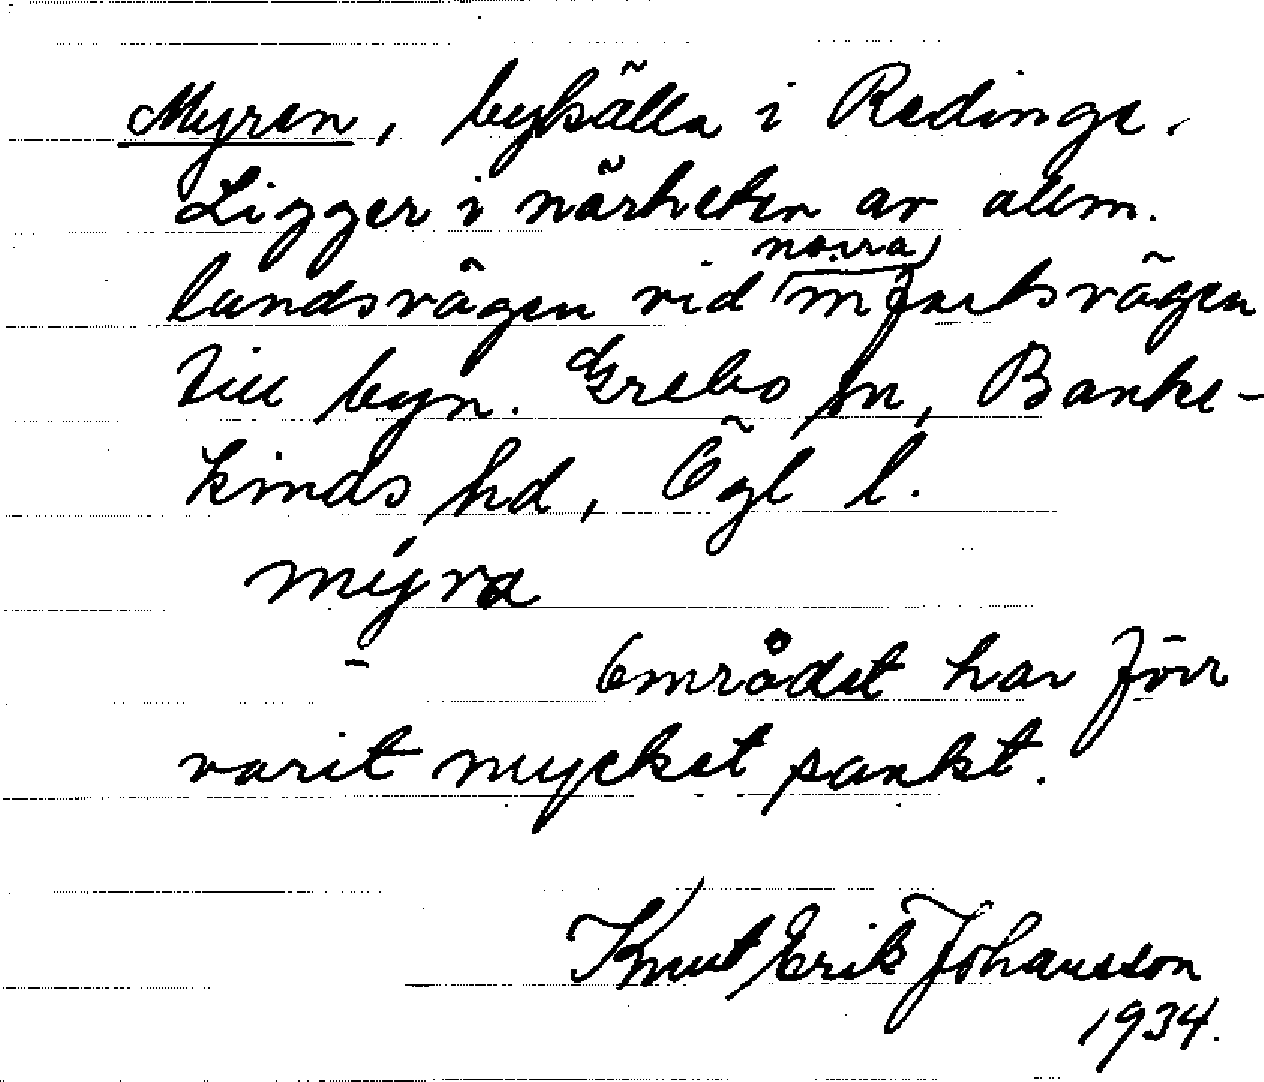 Myren, bykälla i Redinge.
Ligger i närheten av allm.
landsvägen vid norra
infartsvägen
till byn. Grebo sn, Banke-
kinds hd, Ögl l.
myra
Området har förr
varit mycket sankt.
Knut Erik Johansson
1934.